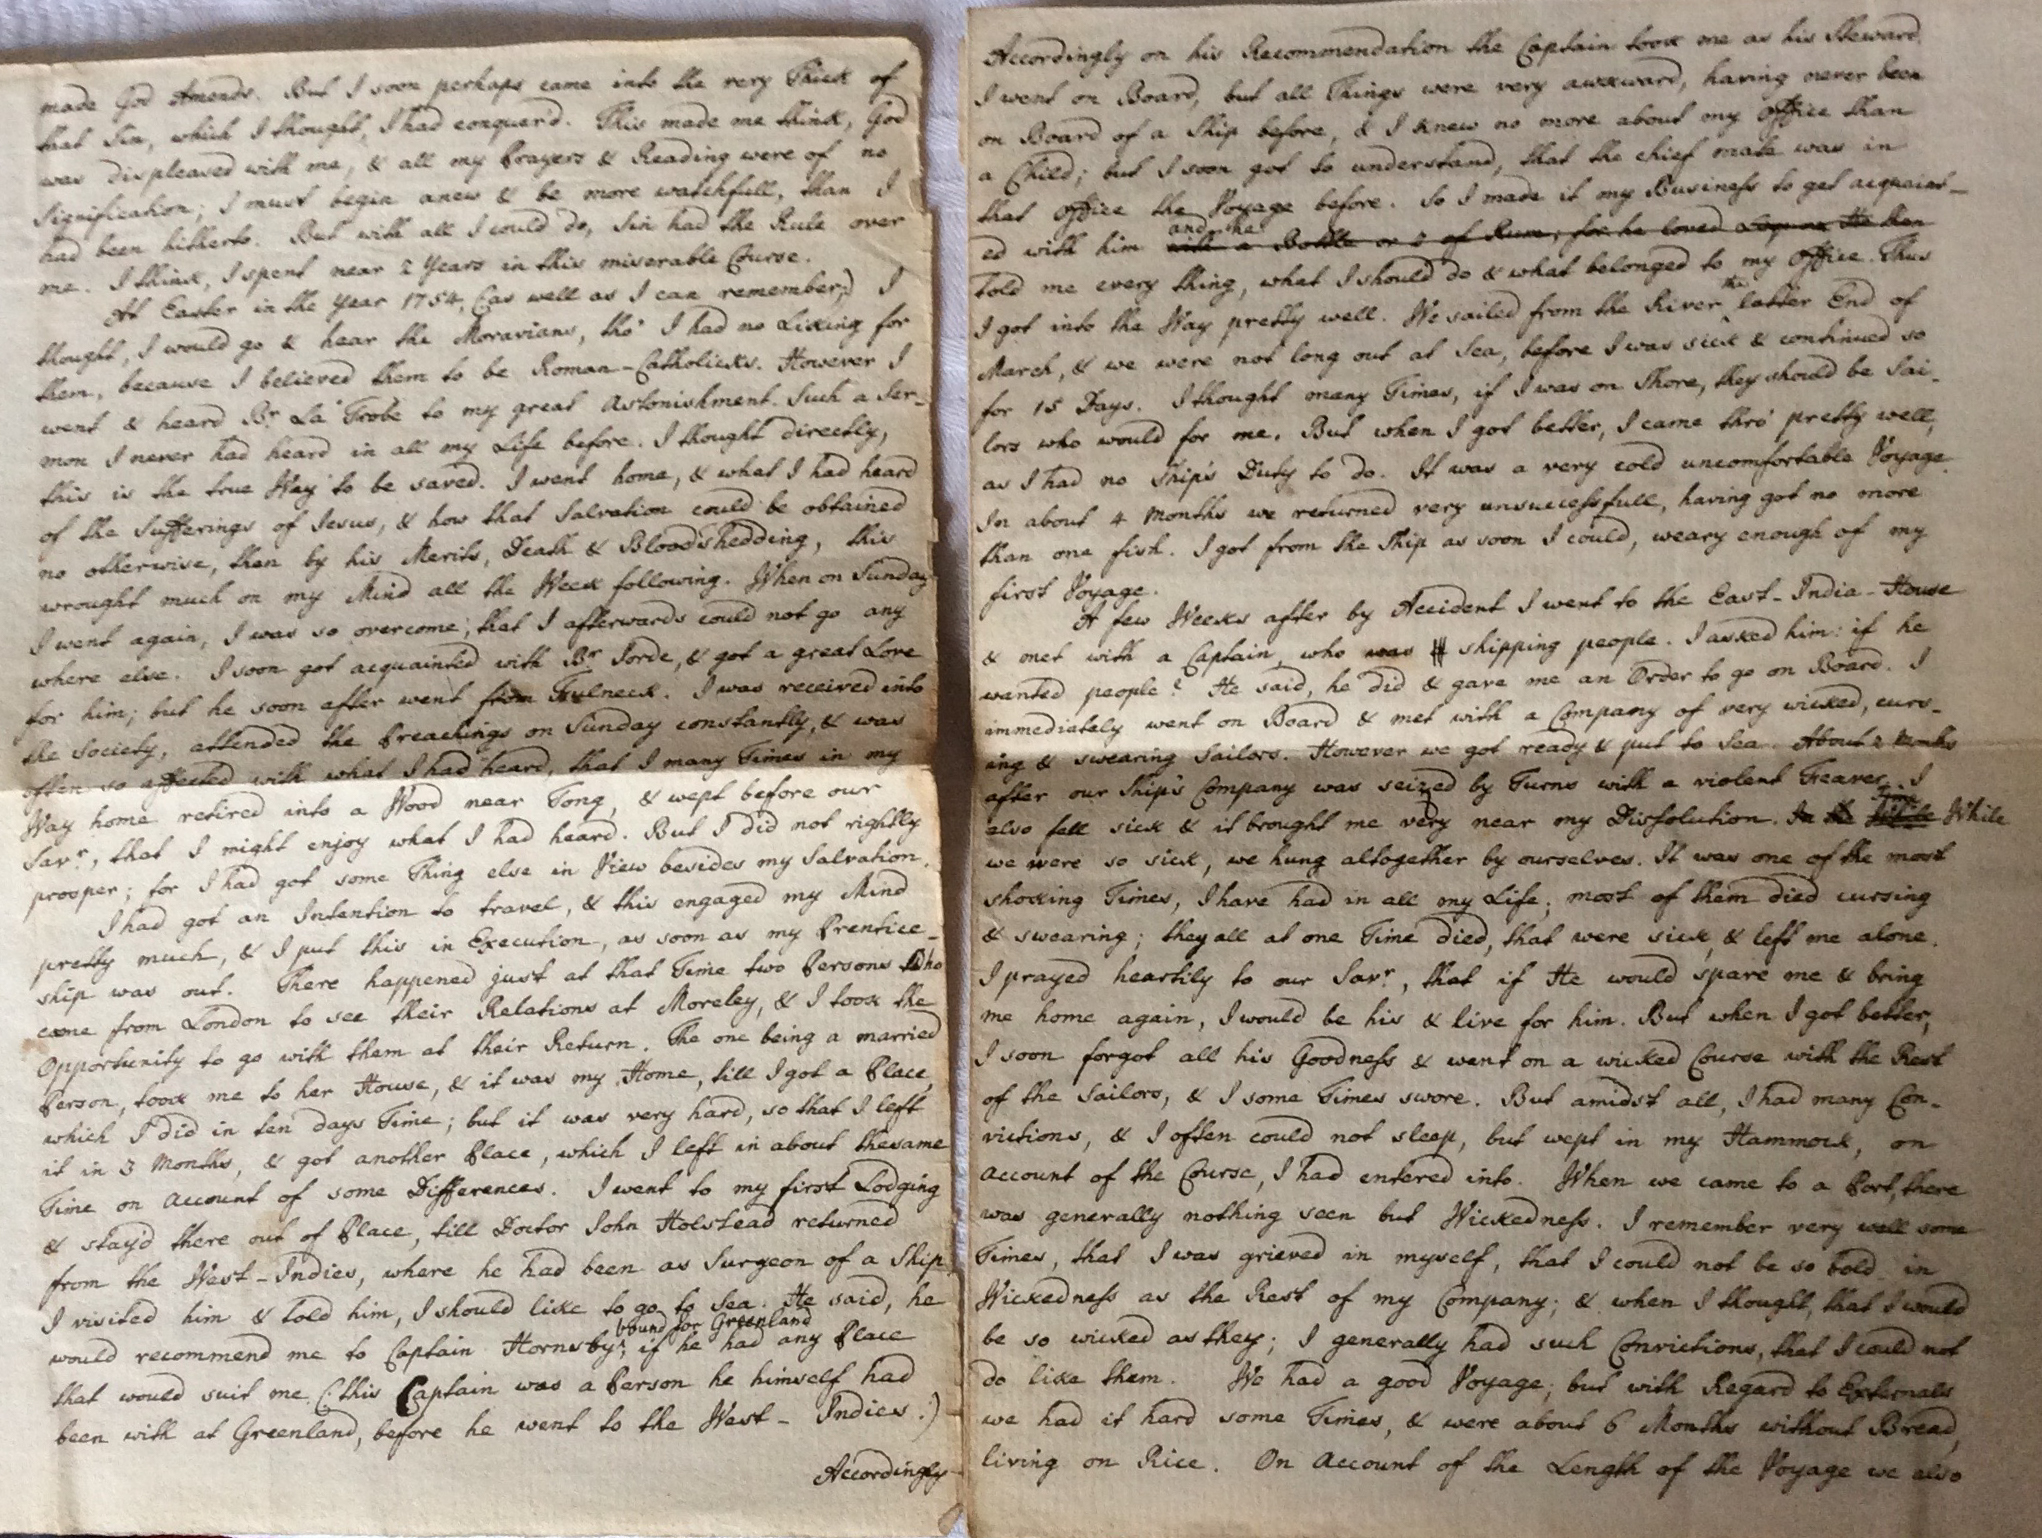 made God Amends. But I soon perhaps came into the very Thick of
that Sin, which I thought, I had conquer'd. This made me think, God
was displeased with me, & all my Prayers & Reading were of no
Signification; I must begin anew & be more watchfull, than I
had been hitherto. But with all I could do, Sin had the Rule over
me. I think, I spent near 2 Years in this miserable Course.
At Easter in the Year 1754, (as well as I can remember,) I
thought, I would go & hear the Moravians, tho' I had no Liking for
them, because I believed them to be Roman-Catholicks. However I
went & heard Br. La Trobe to my great Astonishment. Such a Ser-
mon I never had heard in all my Life before. I thought directly,
this is the true Way to be saved. I went home, & what I had heard
of the Sufferings of Jesus, & how that Salvation could be obtained
no otherwise, then by his Merits, Death & Bloodshedding, this
wrought much on my Mind all the Week following. When on Sunday
I went again, I was so overcome, that I afterwards could not go any
where else. I soon got acquainted with Br. Torde, & got a great Love
for him; but he soon after went from Fulneck. I was received into
the Society, attended the Preachings on Sunday constantly, & was
often so affected with what I had heard, that I many Times in my
Way home retired into a Wood near Tong, & wept before our
Savr., that I might enjoy what I had heard. But I did not rightly
prosper; for I had got some Thing else in View besides my Salvation.
I had got an Intention to travel, & this engaged my Mind
pretty much, & I put this in Execution, as soon as my Prentice-
ship was out. There happened just at that Time two Persons who
come from London to see their Relations at Moreley, & I took the
Opportunity to go with them at their Return. The one being a married
Person, took me to her House, & it was my Home, till I got a Place,
which I did in ten days Time; but it was very hard, so that I left
it in 3 Months, & got another Place, which I left in about the same
Time on Account of some Differences. I went to my first Lodging
& stay'd there out of Place, till Doctor John Holstead returned
from the West-Indies, where he had been as Surgeon of a Ship.
I visited him & told him, I should like to go to Sea. He said, he
bound for Greenland
would recommend me to Captain Hornsby, if he had any Place
that would suit me (: this Captain was a Person he himself had
been with at Greenland, before he went to the West-Indies :)
Accordingly
Accordingly on his Recommendation the Captain took me as his Steward.
I went on Board, but all Things were very awkward, having never been
on Board of a Ship before, & I knew no more about my Office than
a Child; but I soon got to understand, that the chief mate was in
that Office the Voyage before. So I made it my Business to get acquaint-
and he
ed with him with a Bottle or 2 of Rum; for he loved Liquor. He then
told me every thing, what I should do & what belonged to my Office. Thus
I got into the Way pretty well. We sailed from the River the latter End of
March, & we were not long out at Sea, before I was sick & continued so
for 15 Days. I thought many Times, if I was on Shore, they should be Sai-
lors who would for me. But when I got better, I came thro' pretty well,
as I had no Ship's Duty to do. It was a very cold uncomfortable Voyage.
In about 4 Months we returned very unsuccessfull, having got no more
than one fish. I got from the Ship as soon I could, weary enough of my
first Voyage.
A few Weeks after by Accident I went to the East-India-House
& met with a Captain, who was shipping people. I asked him: if he
wanted people? He said, he did & gave me an Order to go on Board. I
immediately went on Board & met with a Company of very wicked, curs-
ing & swearing Sailors. However we got ready & put to Sea. About 2 Months
after our Ship's Company was seized by Turns with a violent Feaver. I
also fell sick & it brought me very near my Dissolution. In the While
we were so sick, we hung altogether by ourselves. It was one of the most
shocking Times, I have had in all my Life; most of them died cursing
& swearing; they all at one Time died, that were sick, & left me alone.
I prayed heartily to our Savr., that if He would spare me & bring
me home again, I would be his & live for him. But when I got better,
I soon forgot all his Goodness & went on a wicked Course with the Rest
of the Sailors, & I some Times swore. But amidst all, I had many Con-
victions, & I often could not sleep, but wept in my Hammock, on
Account of the Course, I had entered into. When we came to a Port, there
was generally nothing seen but Wickedness. I remember very well some
Times, that I was grieved in myself, that I could not be so bold in
Wickedness as the Rest of my Company; & when I thought, that I would
be so wicked as they; I generally had such Convictions, that I could not
do like them. We had a good Voyage, but with Regard to Externals
we had it hard some Times, & were about 6 Months without Bread,
living on Rice. On Account of the Length of the Voyage we also